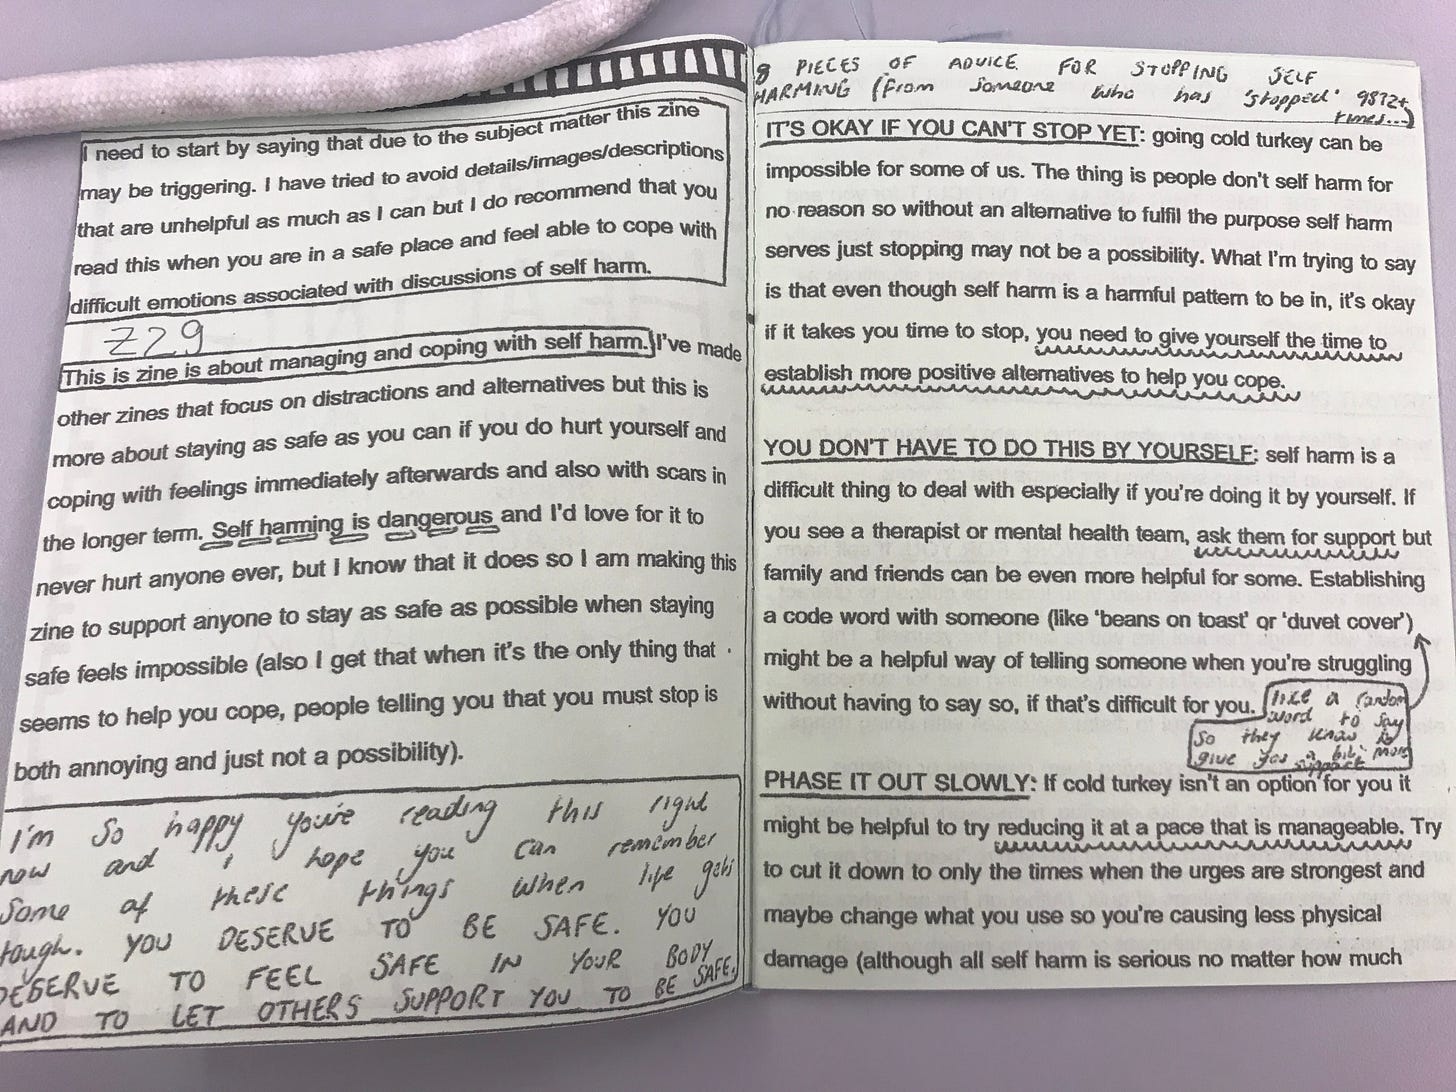 I need to start by saying that due to the subject matter this zine
may be triggering. I have tried to avoid details/images/descriptions
that are unhelpful as much as I can but I do recommend that you
read this when you are in a safe place and feel able to cope with
difficult emotions associated with discussions of self harm.
Z29
This is zine is about managing and coping with self harm. I've made
other zines that focus on distractions and alternatives but this is
more about staying as safe as you can if you do hurt yourself and
coping with feelings immediately afterwards and also with scars in
the longer term. Self harming is dangerous and I'd love for it to
never hurt anyone ever, but I know that it does so I am making this
zine to support anyone to stay as safe as possible when staying
safe feels impossible (also I get that when it's the only thing that
seems to help you cope, people telling you that you must stop is
both annoying and just not a possibility).
I'm so happy you're reading this right
now and i hope you can remember
some of these things when life gets
tough. YOU DESERVE TO BE SAFE. YOU
DESERVE TO FEEL SAFE IN YOUR BODY
AND TO LET OTHERS SUPPORT YOU TO BE SAFE.
8 PIECES OF ADVICE FOR STOPPING SELF
HARMING (from someone who has 'stopped' 9872+
times...)
IT'S OKAY IF YOU CAN'T STOP YET: going cold turkey can be
impossible for some of us. The thing is people don't self harm for
no reason so without an alternative to fulfil the purpose self harm
serves just stopping may not be a possibility. What I'm trying to say
is that even though self harm is a harmful pattern to be in, it's okay
if it takes you time to stop, you need to give yourself the time to
establish more positive alternatives to help you cope.
YOU DON'T HAVE TO DO THIS BY YOURSELF: self harm is a
difficult thing to deal with especially if you're doing it by yourself. If
you see a therapist or mental health team, ask them for support but
family and friends can be even more helpful for some. Establishing
a code word with someone (like 'beans on toast' or 'duvet cover')
might be a helpful way of telling someone when you're struggling
without having to say so, if that's difficult for you.
like a random
word to say
so they know to
give you a bit more
support
PHASE IT OUT SLOWLY: If cold turkey isn't an option for you it
might be helpful to try reducing it at a pace that is manageable. Try
to cut it down to only the times when the urges are strongest and
maybe change what you use so you're causing less physical
damage (although all self harm is serious no matter how much